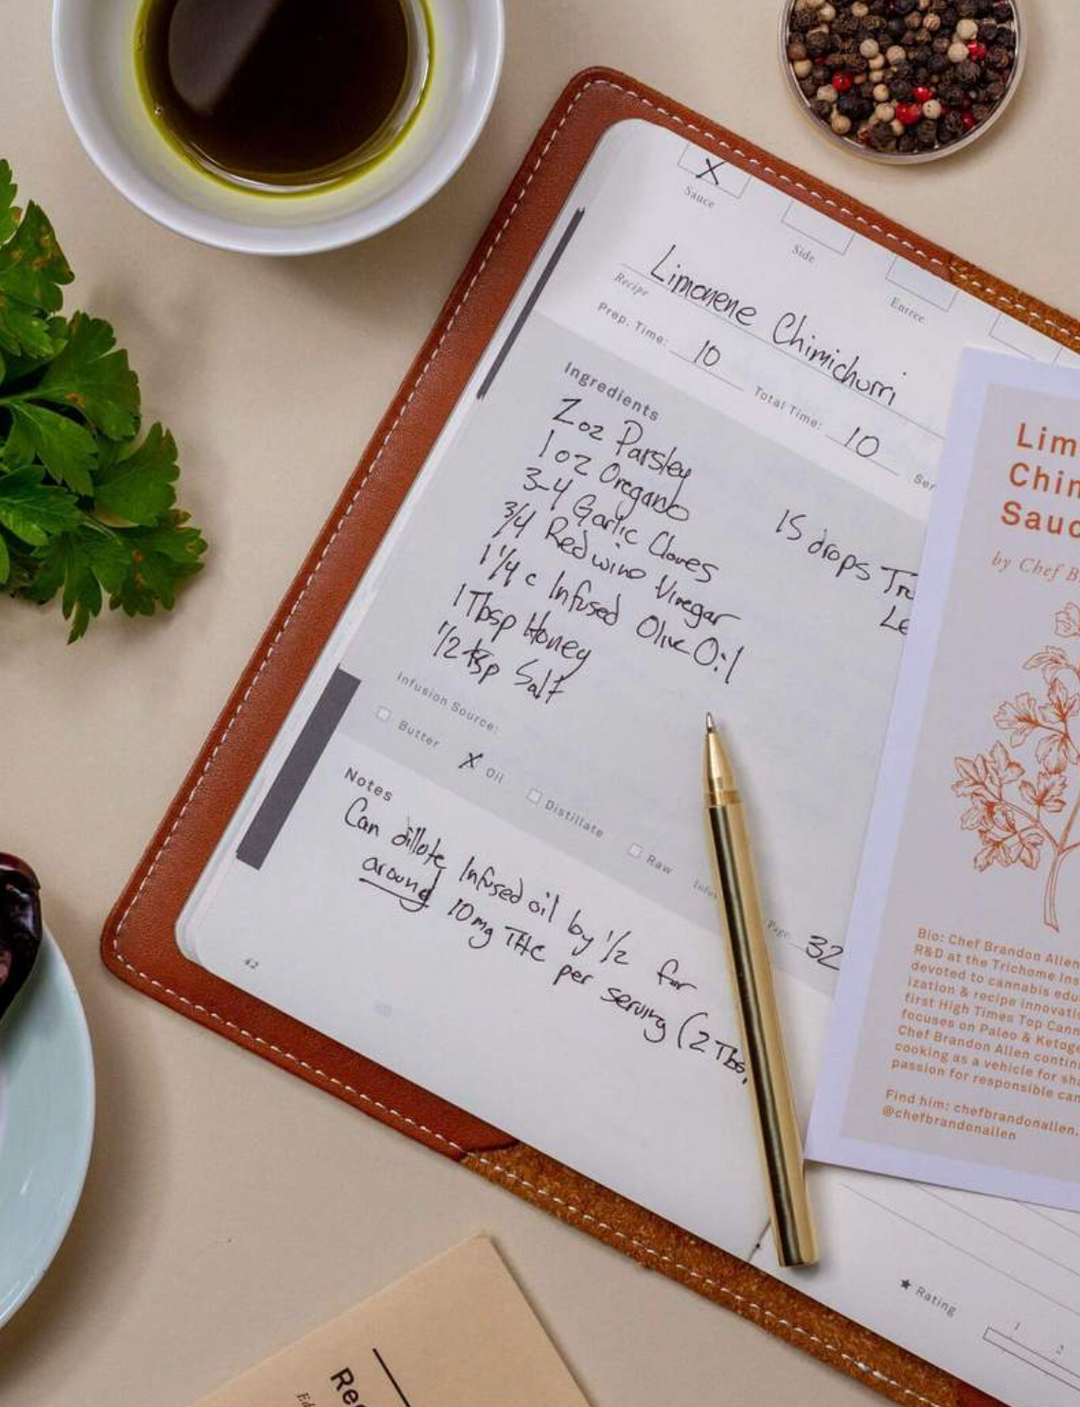 X
Sauce
Side
Entree
Limonene Chimichurri
Recipe
Prep. Time: 10 Total Time: 10 Ser
Ingredients
2 oz Parsley
1 oz Oregano
3-4 Garlic Cloves
3/4 Red wine Vinegar
1 1/4 c Infused Olive Oil
1 Tbsp Honey
1/2 tsp Salt
15 drops Tr
Le
Infusion Source:
Butter X Oil Distillate Raw Infus Page 32
Notes
Can dillote Infused oil by 1/2 for
around 10mg THC per serving (2 Tbs.
42
Lim
Chim
Sauc
by Chef B
Bio: Chef Brandon Allen
R&D at the Trichome Ins
devoted to cannabis edu
ization & recipe innovati
first High Times Top Cann
focuses on Paleo & Ketoge
Chef Brandon Allen contin
cooking as a vehicle for sh
passion for responsible can
Find him: chefbrandonallen.
@chefbrandonallen
★ Rating
1 2
Re
Ed